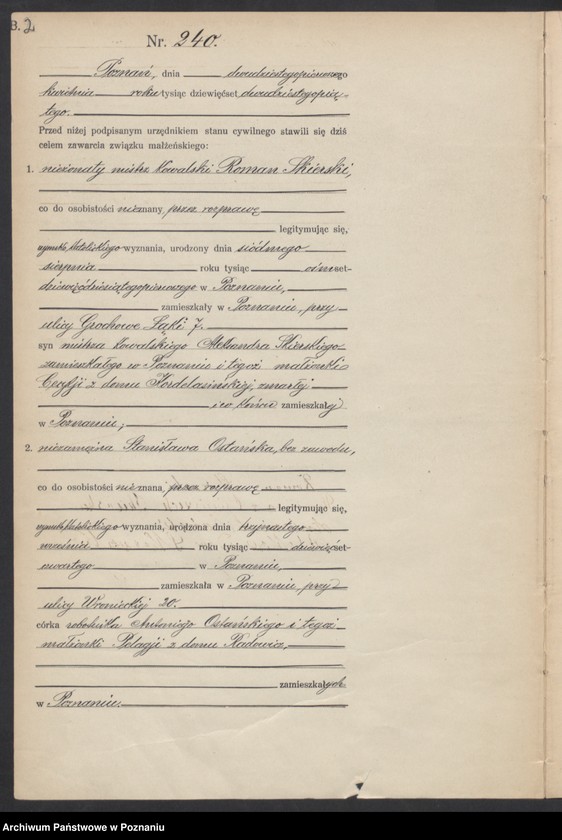 B. 2
Nr. 240.
Poznań, dnia dwudziestegopierwszego
kwietnia roku tysiąc dziewięćset dwudziestegopią-
tego.
Przed niżej podpisanym urzędnikiem stanu cywilnego stawili się dziś
celem zawarcia związku małżeńskiego:
1. nieżonaty mistrz kowalski Roman Skierski,
co do osobistości nieznany, przez rozprawę
legitymując się,
rzymsko katolickiego wyznania, urodzony dnia siódmego
sierpnia roku tysiąc ośmset-
dziewięćdziesiątegopierwszego w Poznaniu,
zamieszkały w Poznaniu, przy
ulicy Grochowe Łąki 7.
syn mistrza kowalskiego Aleksandra Skierskiego
zamieszkałego w Poznaniu i tegoż małżonki
Cecylji z domu zmarłej
i w końcu zamieszkałej
w Poznaniu;
2. niezamężna Stanisława Ostańska, bez zawodu,
co do osobistości nieznana, przez rozprawę
legitymując się,
rzymsko katolickiego wyznania, urodzona dnia
września roku tysiąc dziewięćset-
czwartego w Poznaniu,
zamieszkała w Poznaniu, przy
ulicy Wronieckiej 20.
córka robotnika Antoniego Ostańskiego i tegoż
małżonki Pelagji z domu Radowicz,
zamieszkałych
w Poznaniu.
Archiwum Państwowe w Poznaniu